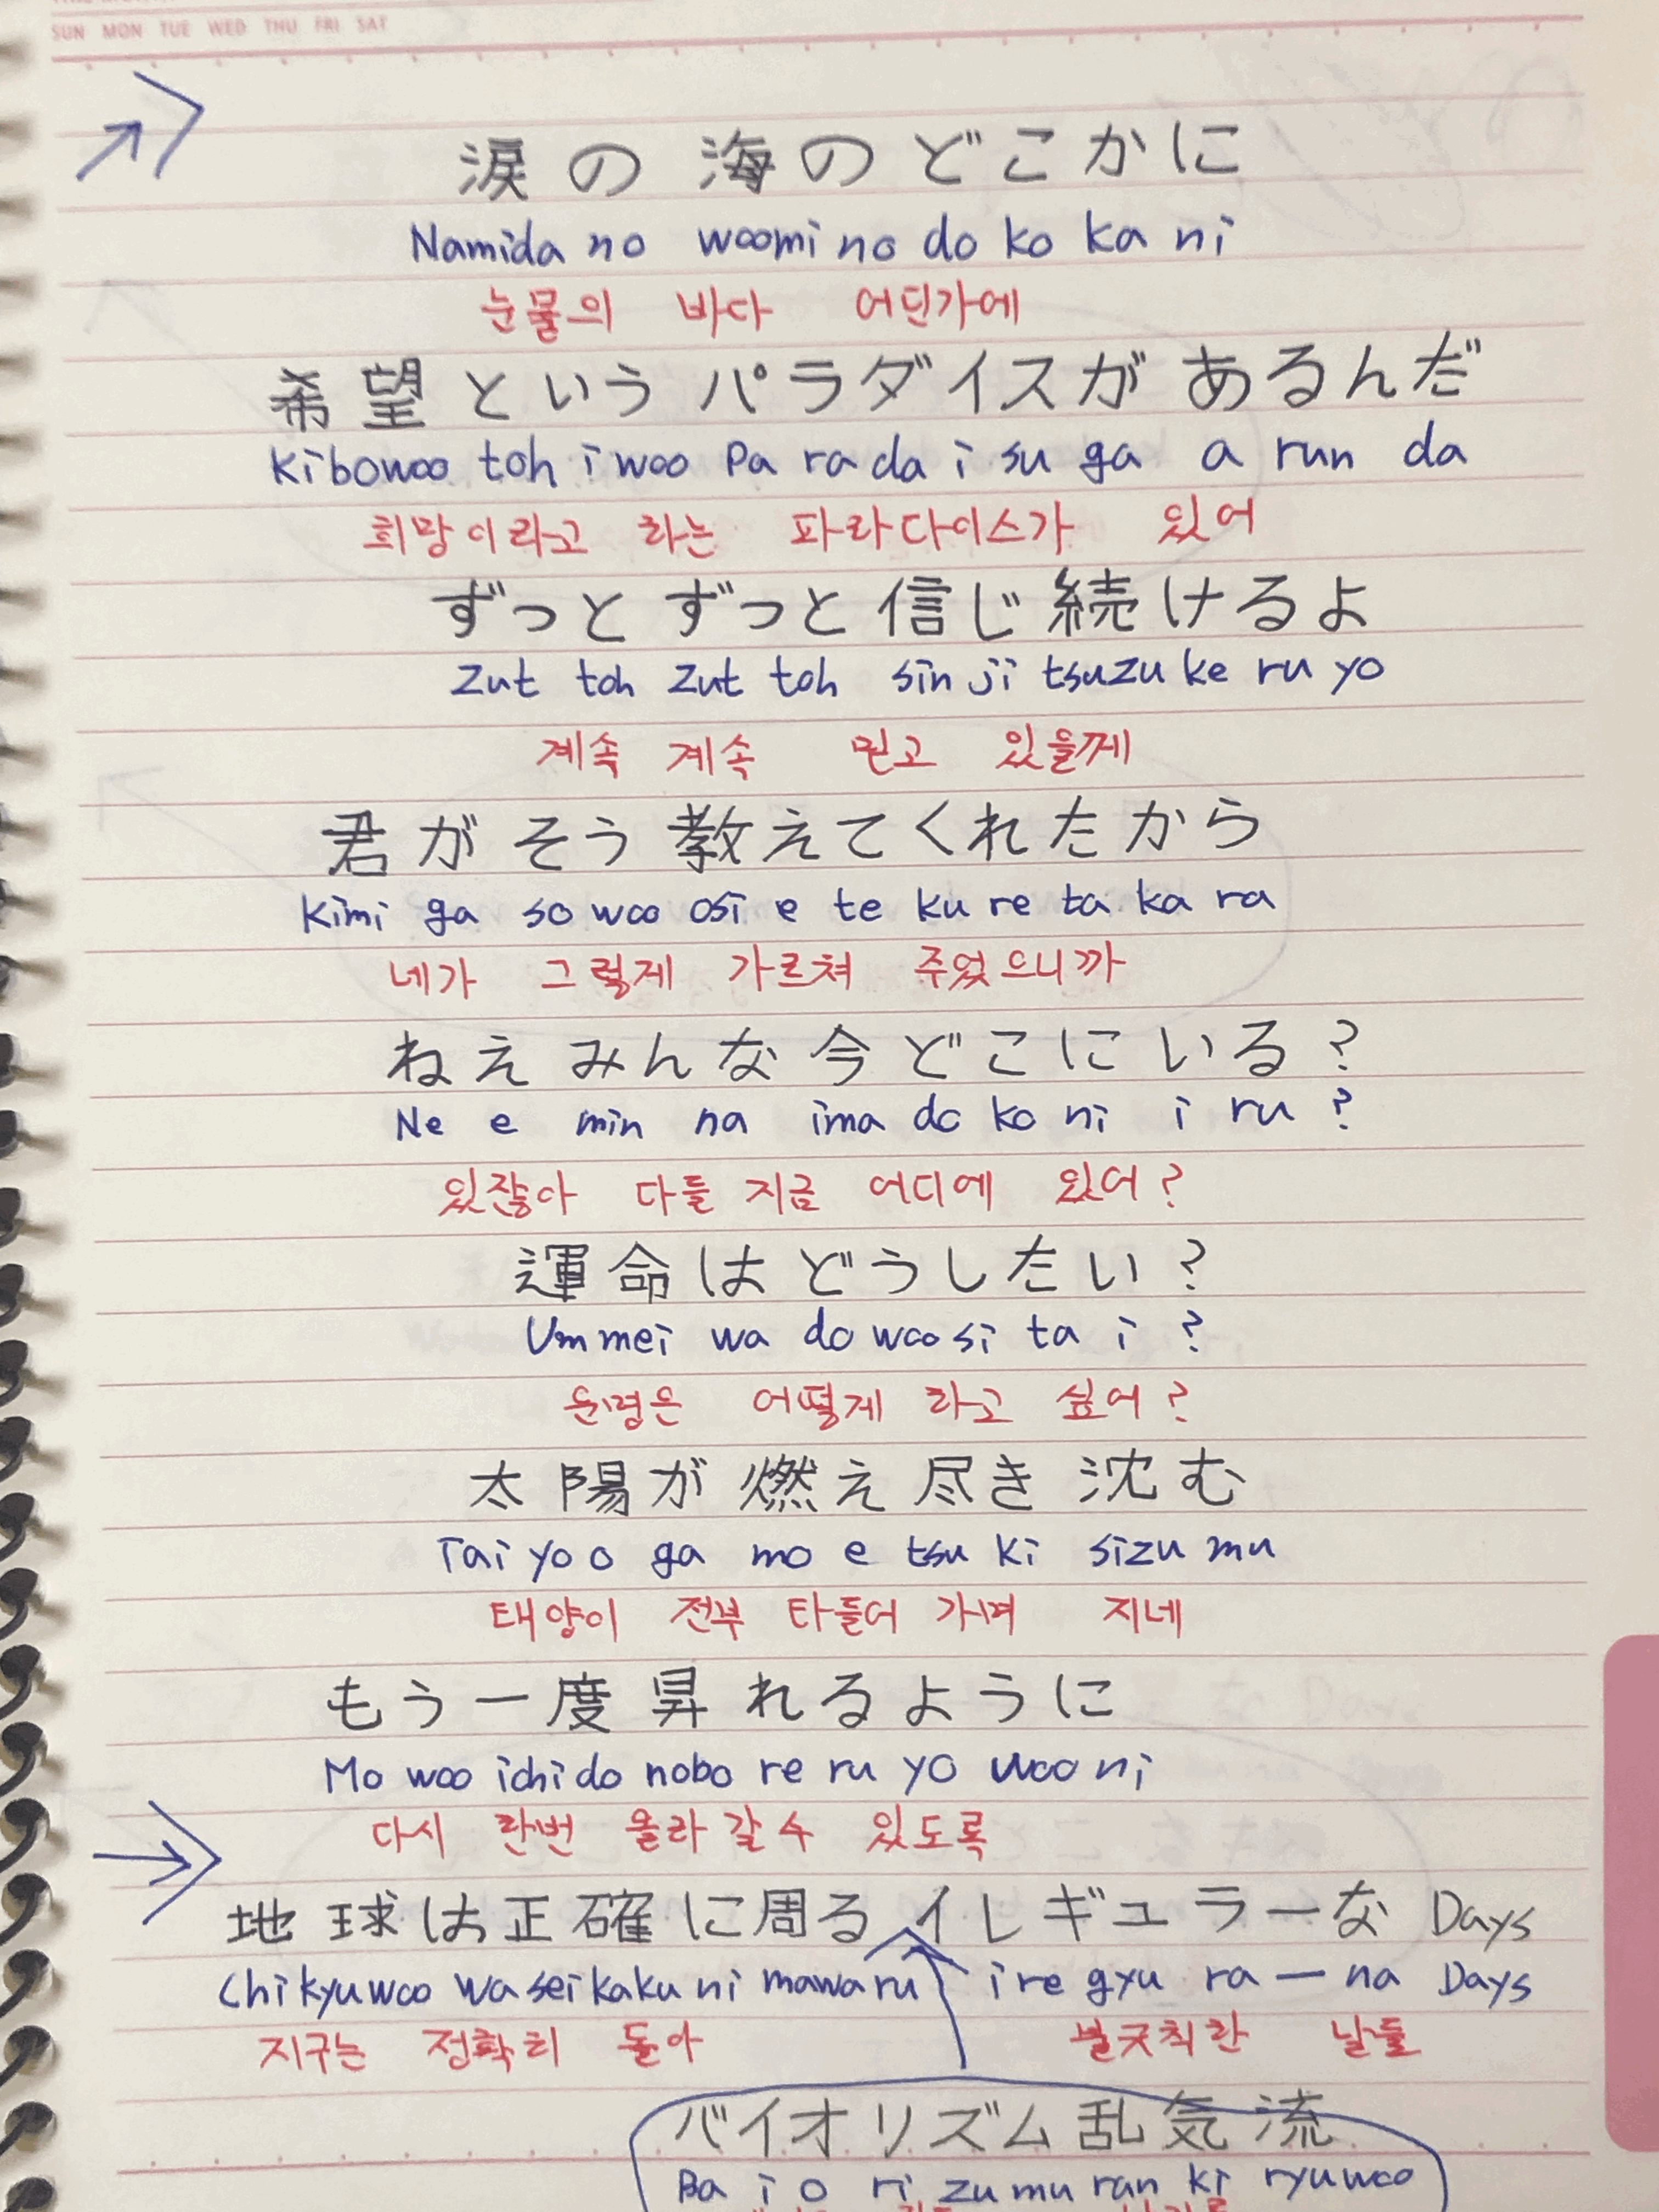 SUN MON TUE WED THU FRI SAT
涙の海のどこかに
Namida no woomi no do ko ka ni
눈물의 바다 어딘가에
希望というパラダイスがあるんだ
Kibowoo toh i woo Pa ra da i su ga a run da
희망이라고 하는 파라다이스가 있어
ずっとずっと信じ続けるよ
Zut toh Zut toh sin ji tsuzu ke ru yo
계속 계속 믿고 있을께
君がそう教えてくれたから
Kimi ga so woo osi e te ku re ta ka ra
네가 그렇게 가르쳐 주었으니까
ねえみんな今どこにいる?
Ne e min na ima do ko ni i ru ?
있잖아 다들 지금 어디에 있어?
運命はどうしたい?
Um mei wa do woo si ta i ?
운명은 어떻게 하고 싶어?
太陽が燃え尽き沈む
Tai yo o ga mo e tsu ki sizu mu
태양이 전부 타들어 가며 지네
もう一度昇れるように
Mo woo ichi do nobo re ru yo woo ni
다시 한번 올라 갈 수 있도록
地球は正確に周るイレギュラーな Days
Chi kyuwoo wa seikaku ni mawaru i re gyu ra ー na Days
지구는 정확히 돌아 불규칙한 날들
バイオリズム乱気流
Ba i o ri zu mu ran ki ryuwoo